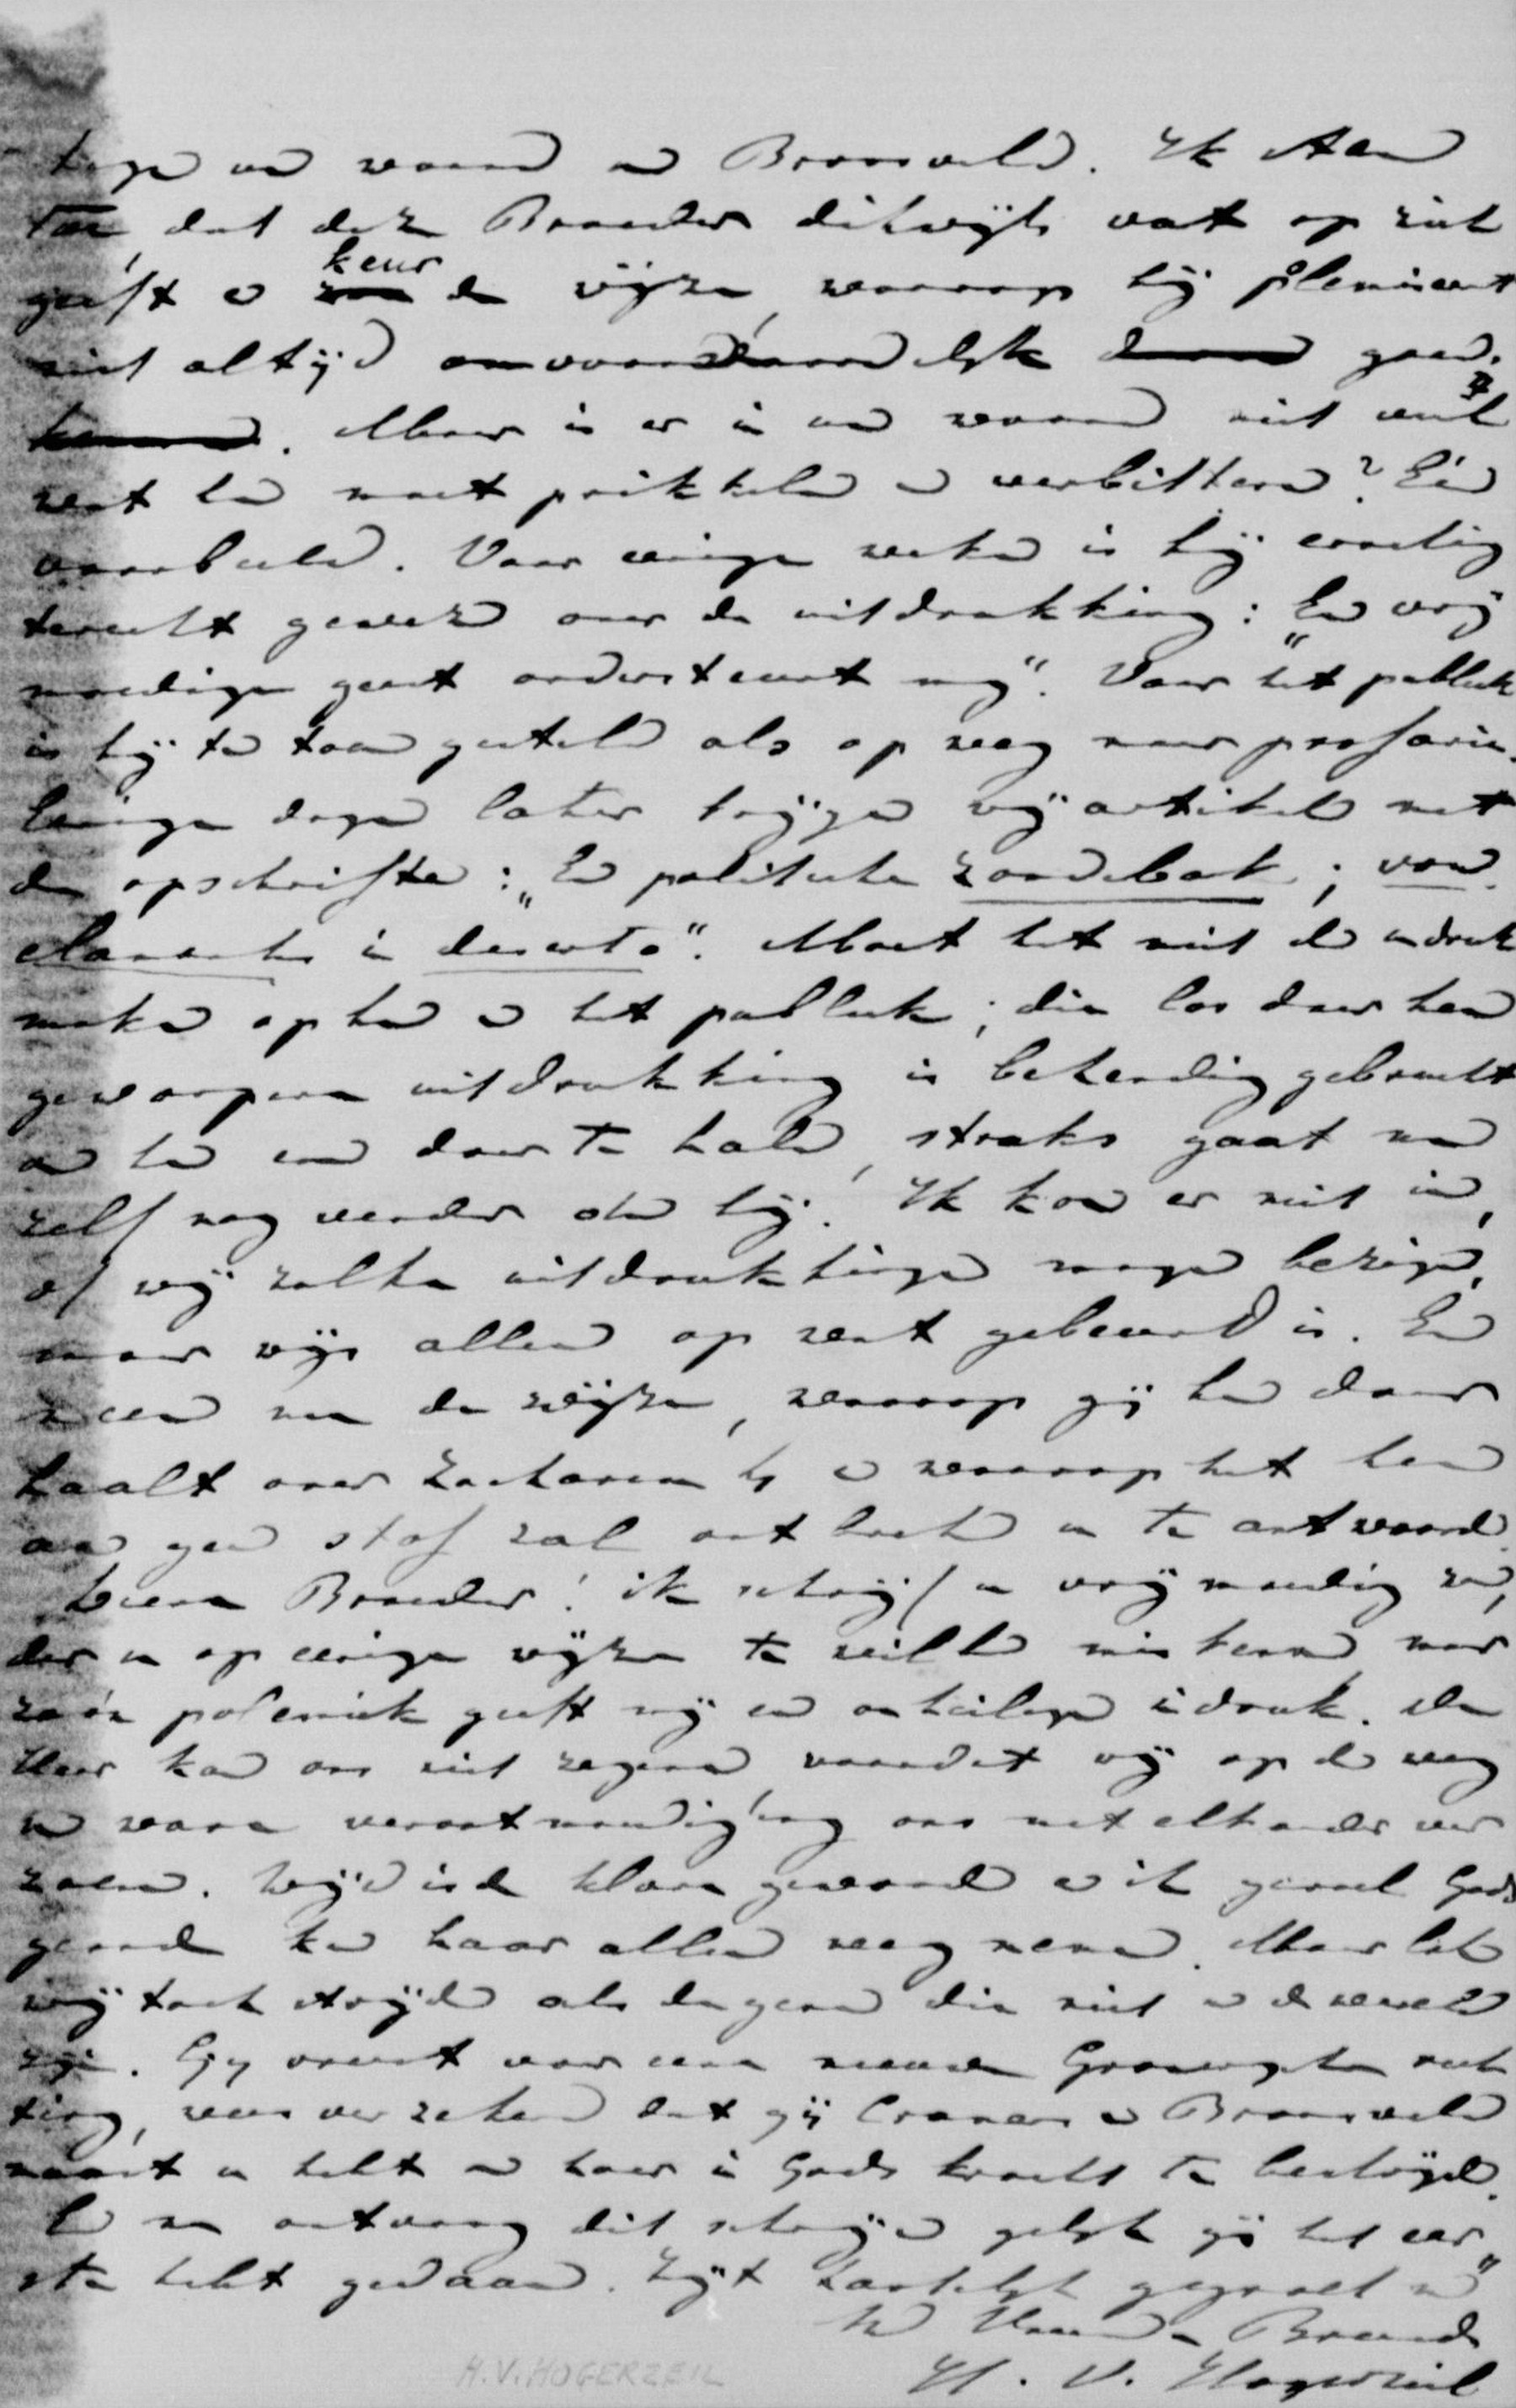 uw woord Bronsveld. Ik stem
toe, dat deze Broeder dikwijls wat op zich
geeft en keur de wijze, waarop hij polemiseert
niet altijd onvoorwaardelijk goed.
Maar is er in uw woord niet veel
wat hem moet prikkelen en verbitteren? Eén
voorbeeld. Voor eenige weken is hij ernstig
terecht gewezen over de uitdrukking: „Een vrij
moedige geest ondersteunt mij“. Voor het publiek
is hij ten toon gesteld als op weg naar profanie.
Eenige dagen later krijgen wij artikelen met
de opschriften: „Een politieke zondebok; vox
clamantis in deserto“. Moet het niet den indruk
maken op hem en het publiek; die los daar heen
geworpene uitdrukking is behendig gebruikt
om hem eens door te halen, straks gaat men
zelf nog verder dan hij! Ik kom er niet in,
of wij zulke uitdrukkingen mogen bezigen,
maar wijs alleen op wat gebeurd is. En
nu de wijze, waarop gij hem door
haalt over en waarop het hem
aan geen stof zal ontbreken u te antwoorden.
Lieve Broeder! ik schrijf u vrijmoedig zon
der u op eenige wijze te willen miskennen maar
zoo'n polemiek geeft mij een onheiligen indruk. De
Heer kan ons niet zegenen, voordat wij op den weg
van ware verootmoediging ons met elkander ver
zoenen. Wijd is de klove geworden en ik geloof Gods
genade kan haar alleen wegnemen. Maar laten
wij toch strijden als degenen die niet van de wereld
zijn. Gij vreest voor eene nieuwe Groningsche rich
ting, wees verzekerd dat gij Cramer en Bronsveld
naast u hebt om haar in Gods kracht te bestrijden.
En nu ontvang dit schrijven gelijk gij het eer
ste hebt gedaan. Zijt hartelijk gegroet van
Uw Vriend en Broeder
H. V. Hogerzeil
H.V. HOGERZEIL